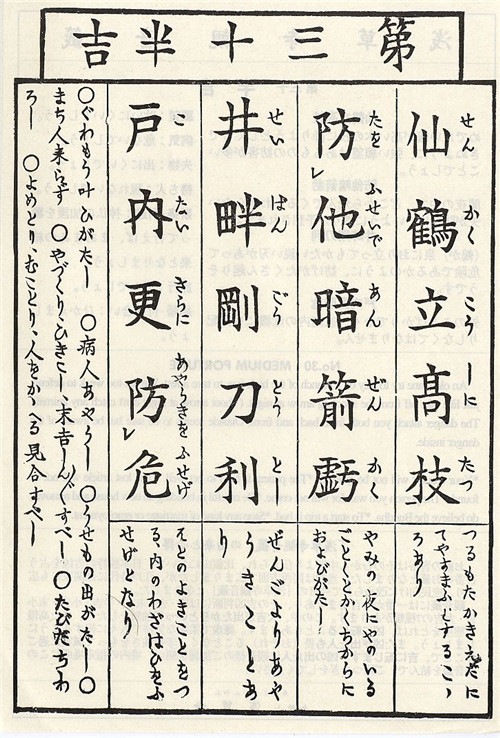 第三十半吉
仙鶴立高枝
せん かく こう しに たつ
つるもたかきえだに
てやすまふとするこゝ
ろあり
防レ他暗箭虧
ふせいで あん ぜん か
やみの夜にやのいる
ごとくとかくちからに
およびがたし
井畔剛刀利
せい はん ごう とう と
ぜんごよりあや
うき
り
戸内更防レ危
こ たい さらに あやうきを ふせぐ
よきことを
内のわざはひをふ
せげとなり
〇ぐわもう叶ひがたし 〇病人あやうし 〇うせもの出がたし 〇
まち人来らず 〇やづくり、ひきこし末吉しん〴〵すべし 〇たびだちわ
ろし 〇よめどり、むことり、人をかゝへる見合すべし